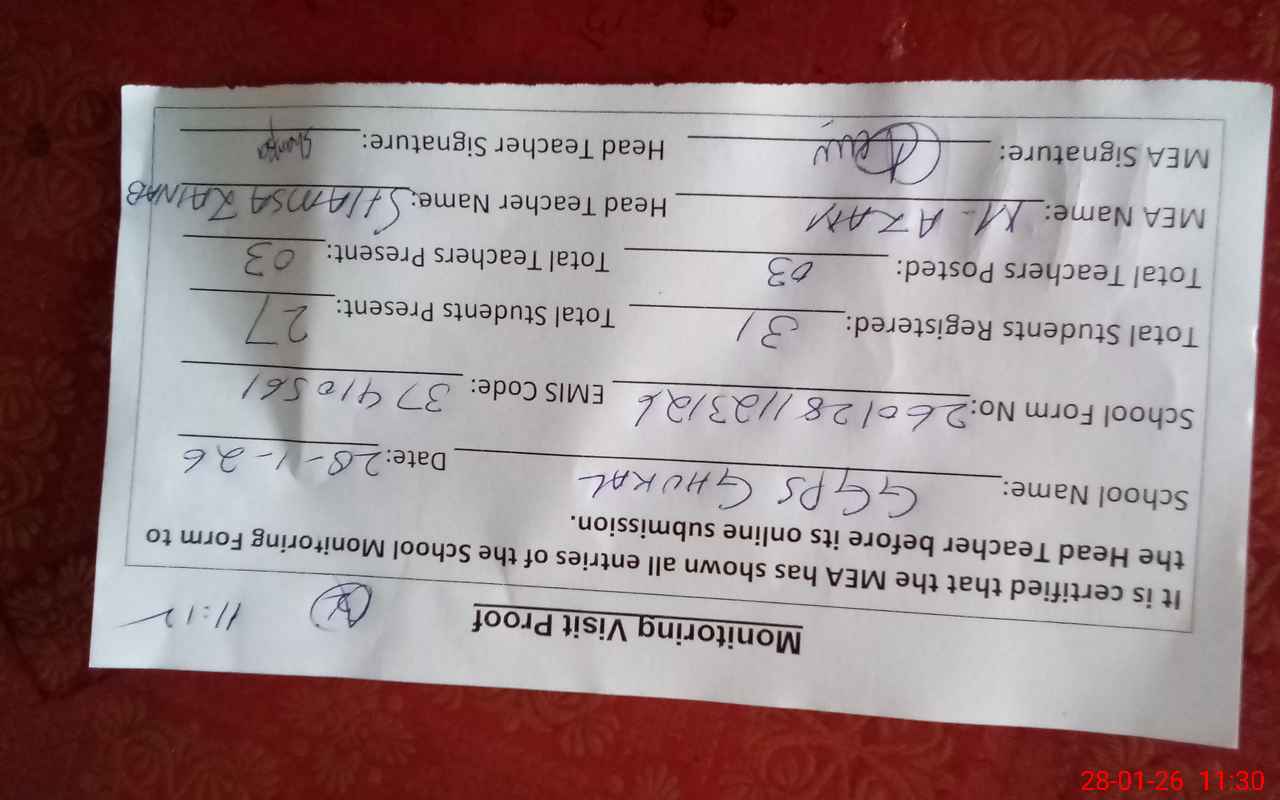 Monitoring Visit Proof 11:12
It is certified that the MEA has shown all entries of the School Monitoring Form to
the Head Teacher before its online submission.
School Name: GGPS GHUKAL Date: 28-1-26
School Form No: 2601281123126 EMIS Code: 37410561
Total Students Registered: 31 Total Students Present: 27
Total Teachers Posted: 03 Total Teachers Present: 03
MEA Name: M-AZAM Head Teacher Name: SHAMSA ZAINAB
MEA Signature: Head Teacher Signature:
28-01-26 11:30